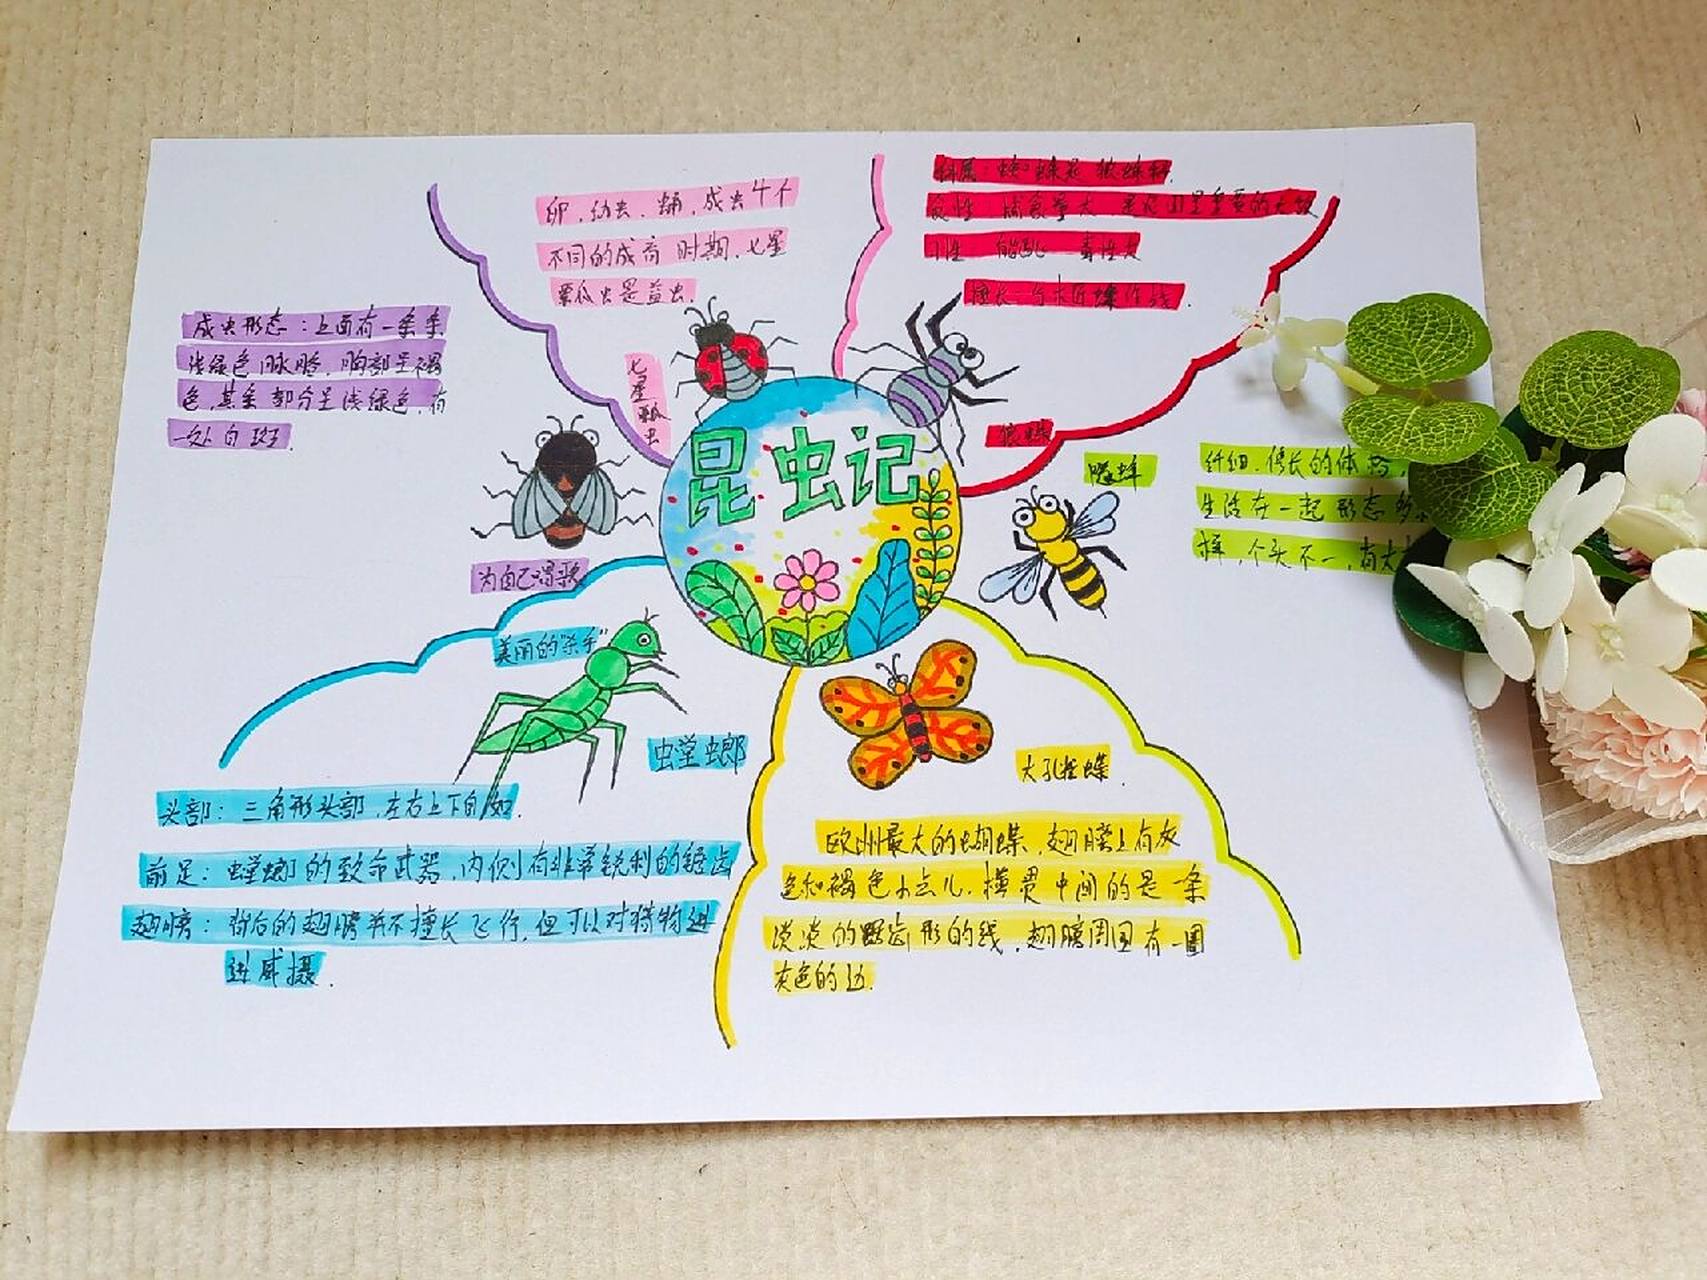 昆虫记
卵,幼虫,蛹,成虫4个
不同的成育时期.七星
瓢瓜虫是益虫.
七星瓢虫
科属:蜘蛛是狼蛛科.
食性
能跳 毒性大
狼蛛
成虫形态:上面有一条条
浅绿色脉胳,胸部呈褐
色,其余部分呈浅绿色,有
一处白斑.
为自己唱歌
腰蜂
纤细.修长的体
生活在一起 形态多
样,个头不一,有大
美丽的"杀手"
螳螂
头部:三角形头部.左右上下自如.
前足:螳螂的致命武器,内侧有非常锐利的锯齿
翅膀:背后的翅膀并不擅长飞行,但可以对猎物进
进威摄.
大孔雀蝶.
欧洲最大的蝴蝶,翅膀上有灰
色和褐色小点儿.横贯中间的是一条
淡淡的锯齿形的线.翅膀周围有一圈
灰色的边.